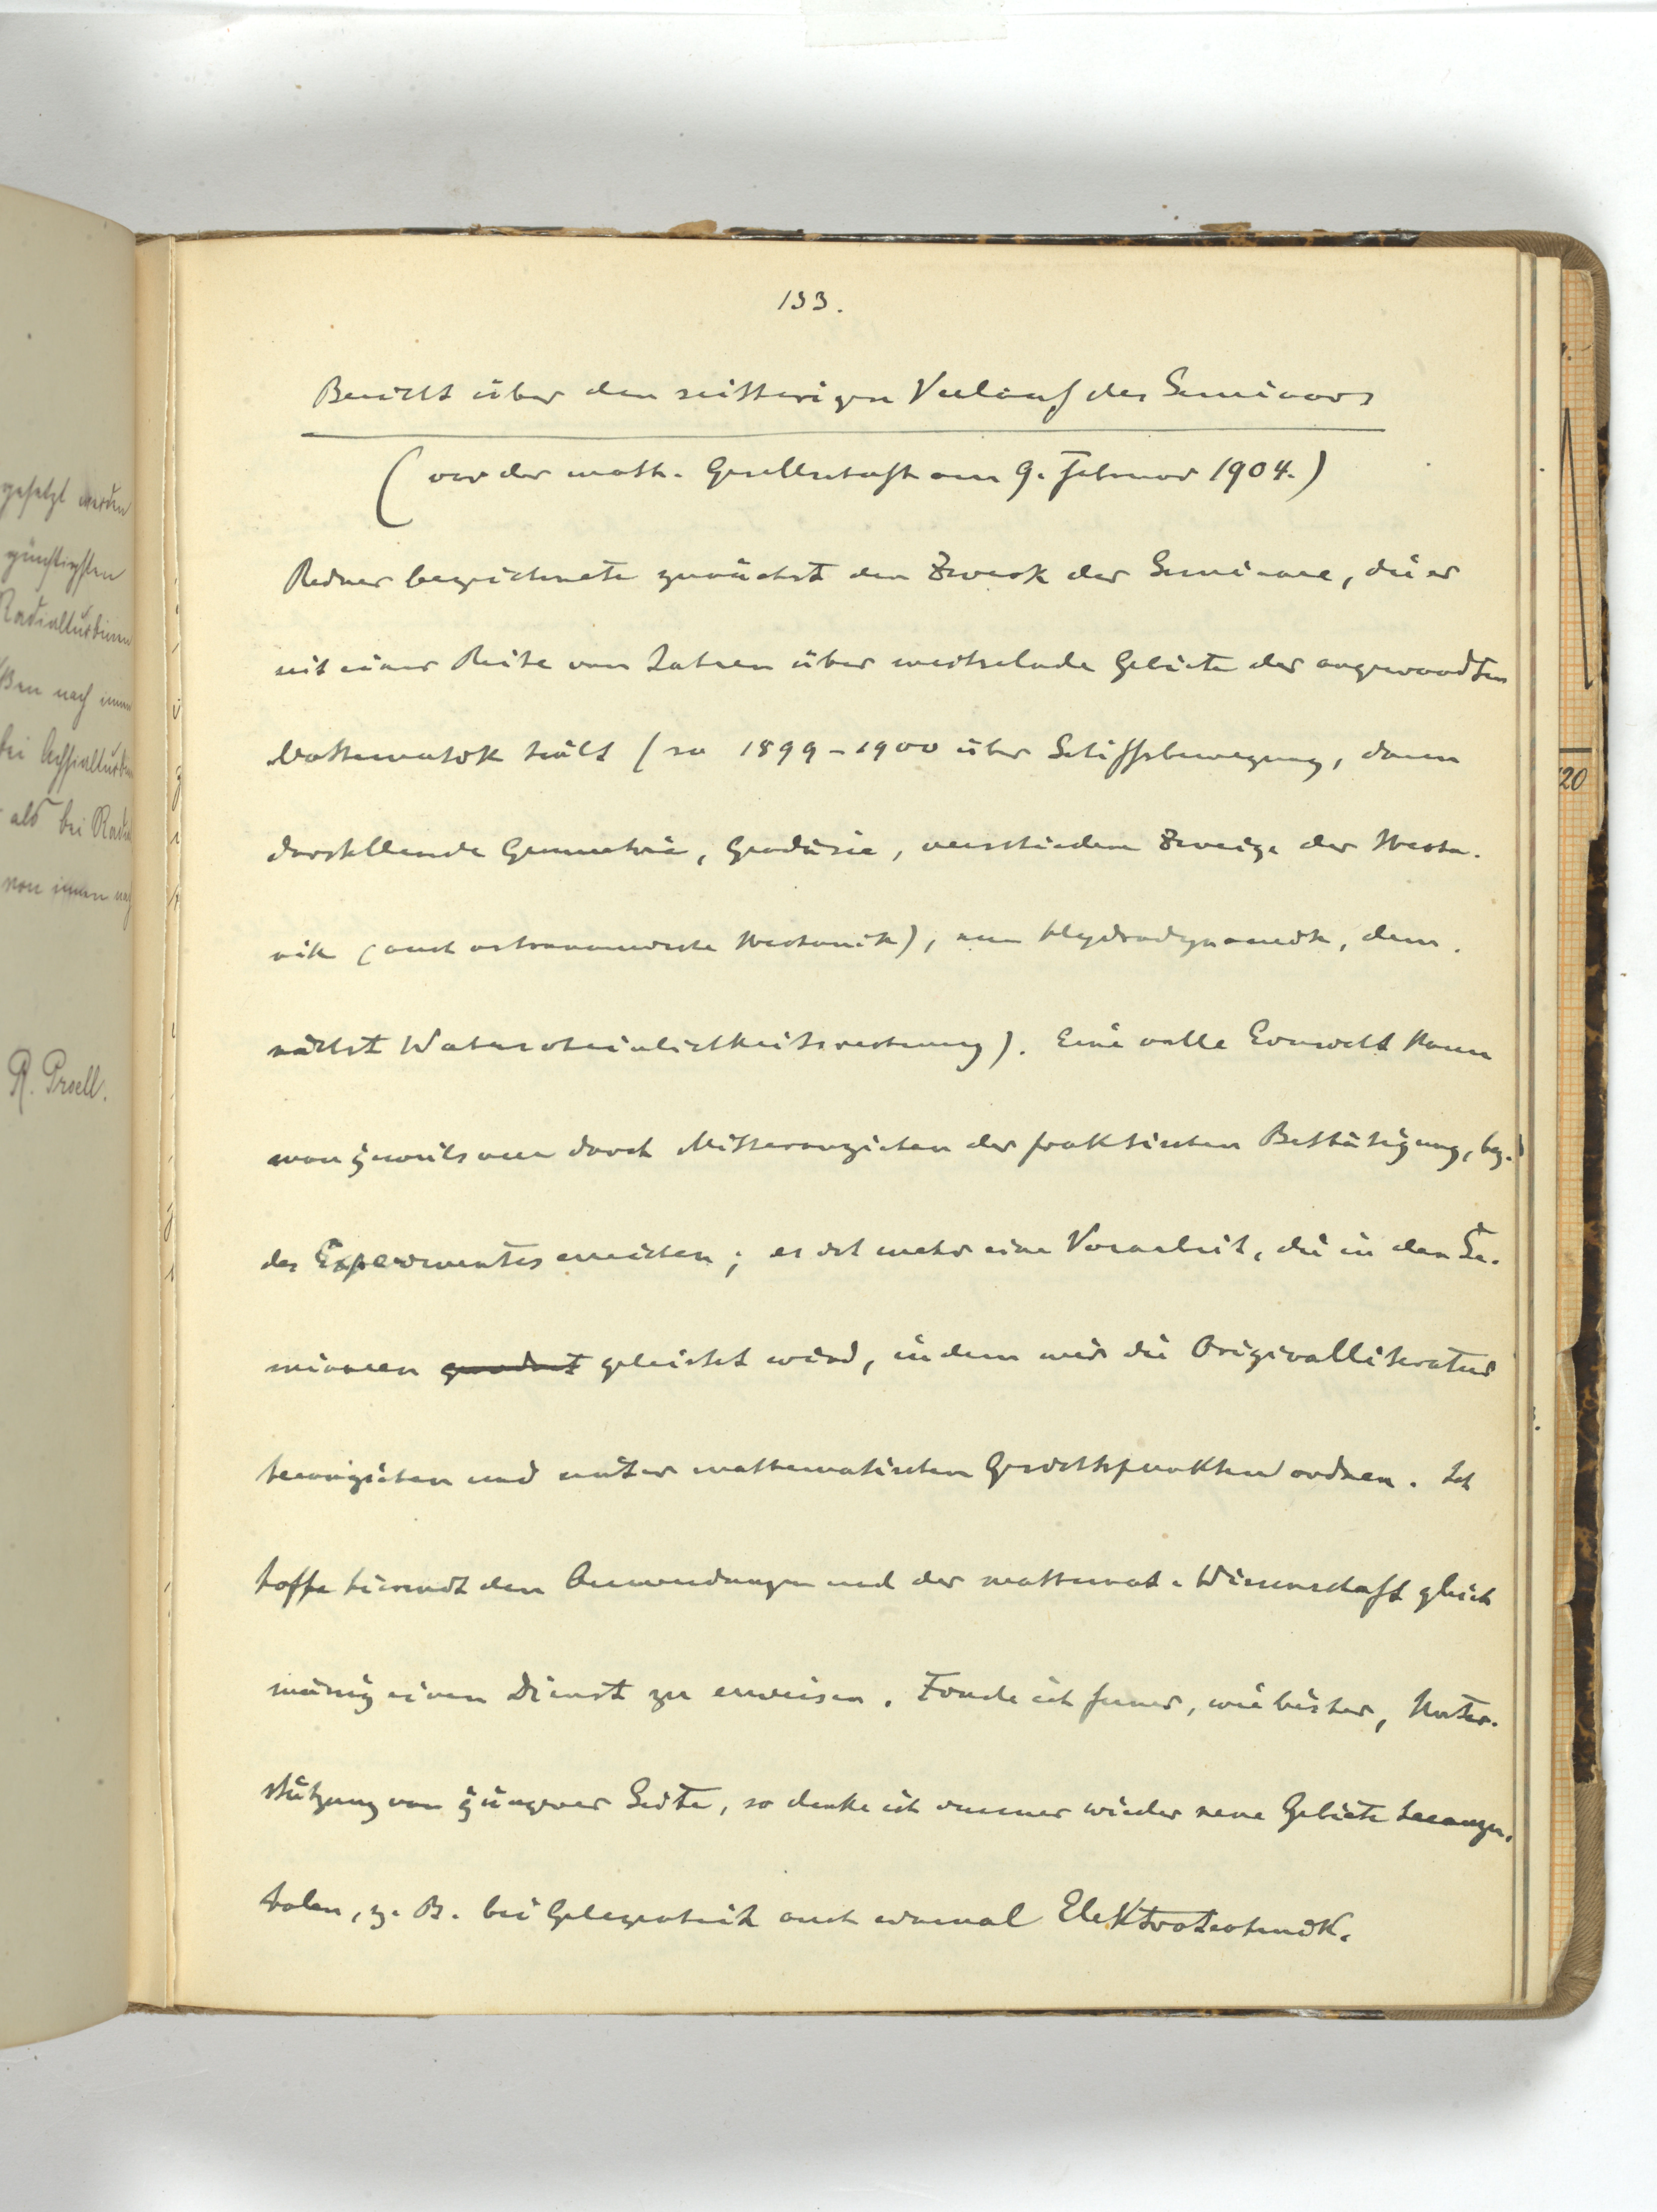 133.
Bericht über den seitherigen Verlauf des Seminars
(vor der math. Gesellschaft am 9. Februar 1904.)
Redner bezeichnete zunächst den Zweck der Seminare, die er
seit einer Reihe von Jahren über wechselnde Gebiete der angewandten
Mathematik hält (so 1899-1900 über Schiffsbewegung, dann
darstellende Geometrie, Geodäsie, verschiedene Zweige der Mecha-
nik (auch astronomische Mechanik), nun Hydrodynamik, dem-
nächst Wahrscheinlichkeitsrechnung). Eine volle Einsicht kann
man jeweils nur durch Mitheranziehen der praktischen Bethätigung, bez.
des Experimentes erreichen; es ist mehr eine Vorarbeit, die in den Se-
minaren geleistet wird, indem wir die Originalliteratur
heranziehen und unter mathematischen Gesichtspunkten ordnen. Ich
hoffe hiermit den Anwendungen und der mathemat. Wissenschaft gleich
mässig einen Dienst zu erweisen. Finde ich ferner, wie bisher, Unter-
stützung von jüngerer Seite, so denke ich immer wieder neue Gebiete heranzu-
holen, z. B. bei Gelegenheit auch einmal Elektrotechnik.
gesetzt werden
günstigsten
Radialturbinen
ßen nach innen
bei Achsialturbin
als bei Radi
von innen nach
R. Proell.
20